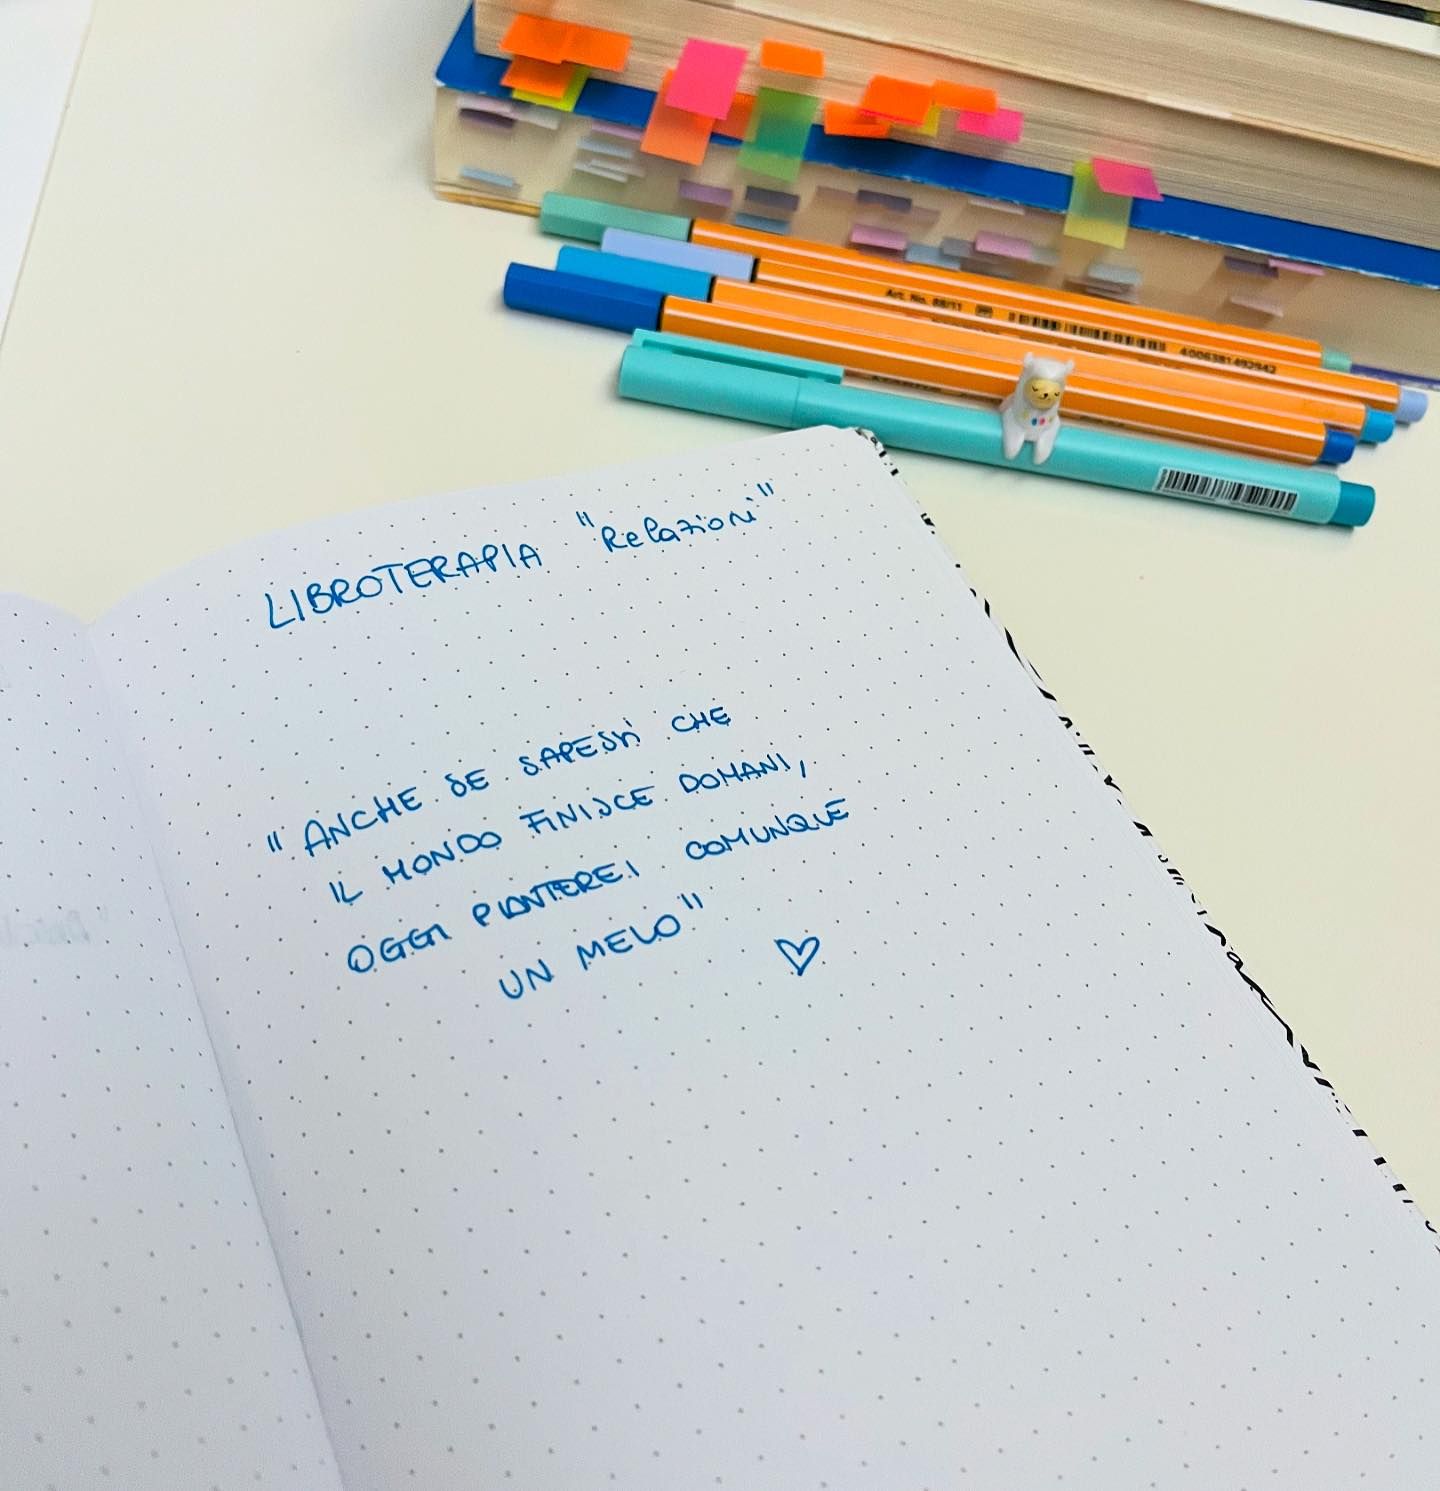 Art. No. 88/11
4006381492942
LIBROTERAPIA "Relazioni"
"ANCHE SE SAPESSI CHE
IL MONDO FINISCE DOMANI,
OGGI PIANTEREI COMUNQUE
UN MELO"